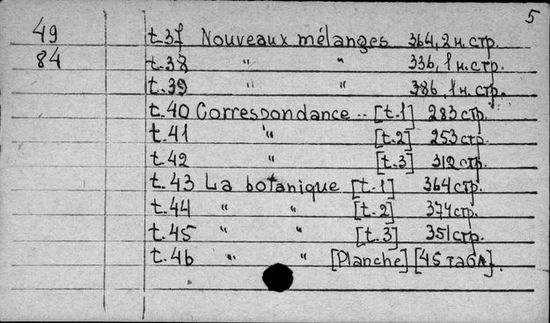 5
49 t.37 Nouveaux mélanges 364, 2 н. стр.
84 t.38 " " 336, 1 н. стр.
t.39 " " 386, 1 н. стр.
t.40 Correspondance .. [t.1] 283 стр.
t.41 " [t.2] 253 стр.
t.42 " [t.3] 312 стр.
t.43 La botanique [t.1] 364 стр.
t.44 " " [t.2] 374 стр.
t.45 " " [t.3] 351 стр.
t.46 " " [Planche] [45 табл.]